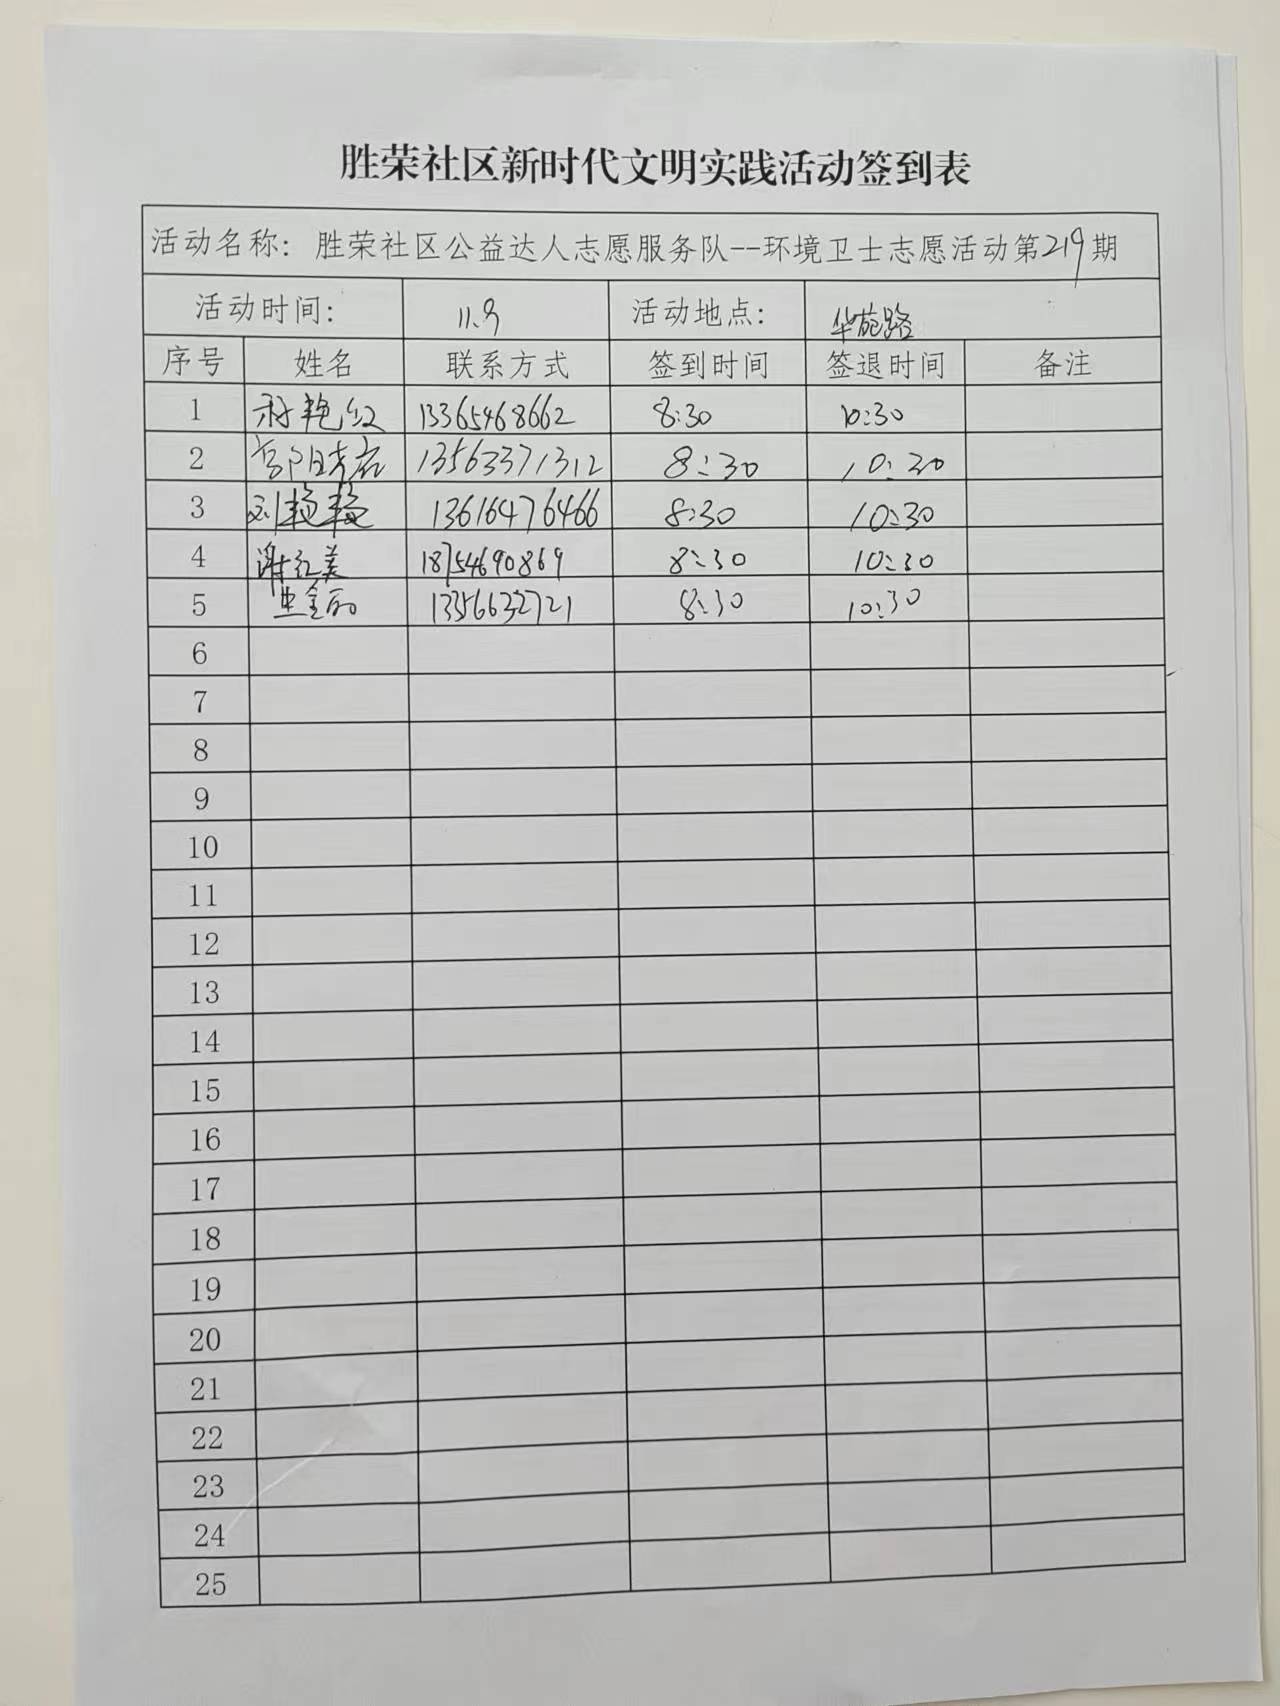 胜荣社区新时代文明实践活动签到表
活动名称：胜荣社区公益达人志愿服务队--环境卫士志愿活动第219期
活动时间： 11.9 活动地点： 华苑路
序号 姓名 联系方式 签到时间 签退时间 备注
1 艳红 13365468662 8:30 10:30
2 13563371312 8:30 10:30
3 刘艳艳 13616476466 8:30 10:30
4 谢红美 18754690869 8:30 10:30
5 13356632721 8:30 10:30
6
7
8
9
10
11
12
13
14
15
16
17
18
19
20
21
22
23
24
25